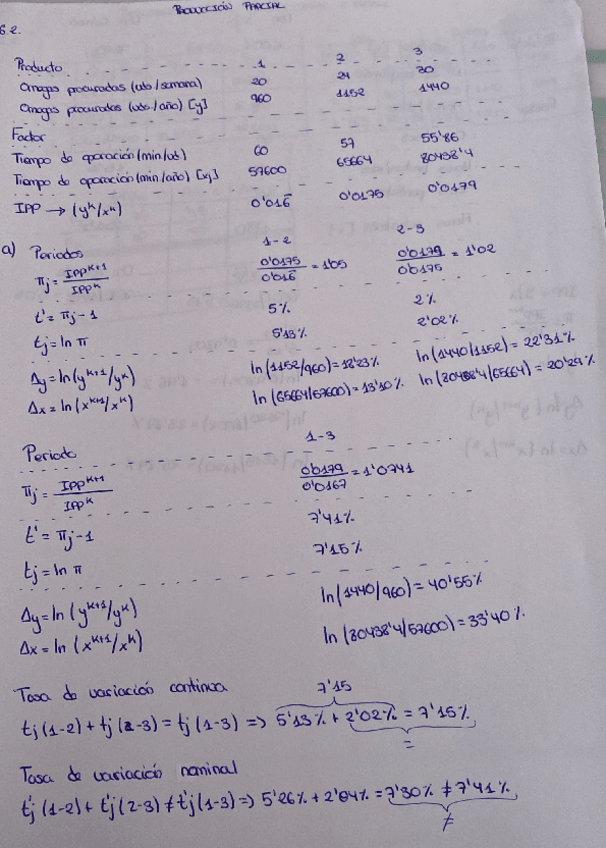 PRODUCCIÓN PARCIAL
6.2.
Producto 1 2 3
Omegas procuradas (uds/semana) 20 24 30
Omegas procuradas (uds/año) [y] 960 1152 1440
Factor
Tiempo de operación (min/ud) 60 57 55'86
Tiempo de operación (min/año) [xj] 57600 65664 80438'4
IPP → (y^k/x^k) 0'016 0'0175 0'0179
a) Periodos 1-2 2-3
πj = IPP^k+1/IPP^k 0'0175/0'016 = 1'05 0'0179/0'0175 = 1'02
t' = πj - 1 5% 2%
tj = ln π 5'13% 2'02%
Δy = ln (y^k+1/y^k) ln (1152/960) = 18'23% ln (1440/1152) = 22'31%
Δx = ln (x^k+1/x^k) ln (65664/57600) = 13'10% ln (80438'4/65664) = 20'29%
Periodo 1-3
πj = IPP^k+1/IPP^k 0'0179/0'0167 = 1'0741
t' = πj - 1 7'41%
tj = ln π 7'15%
Δy = ln (y^k+1/y^k) ln (1440/960) = 40'55%
Δx = ln (x^k+1/x^k) ln (80438'4/57600) = 33'40%
Tasa de variación continua 7'15
tj (1-2) + tj (2-3) = tj (1-3) => 5'13% + 2'02% = 7'15%
=
Tasa de variación nominal
t'j (1-2) + t'j (2-3) ≠ t'j (1-3) => 5'26% + 2'04% = 7'30% ≠ 7'41%
≠